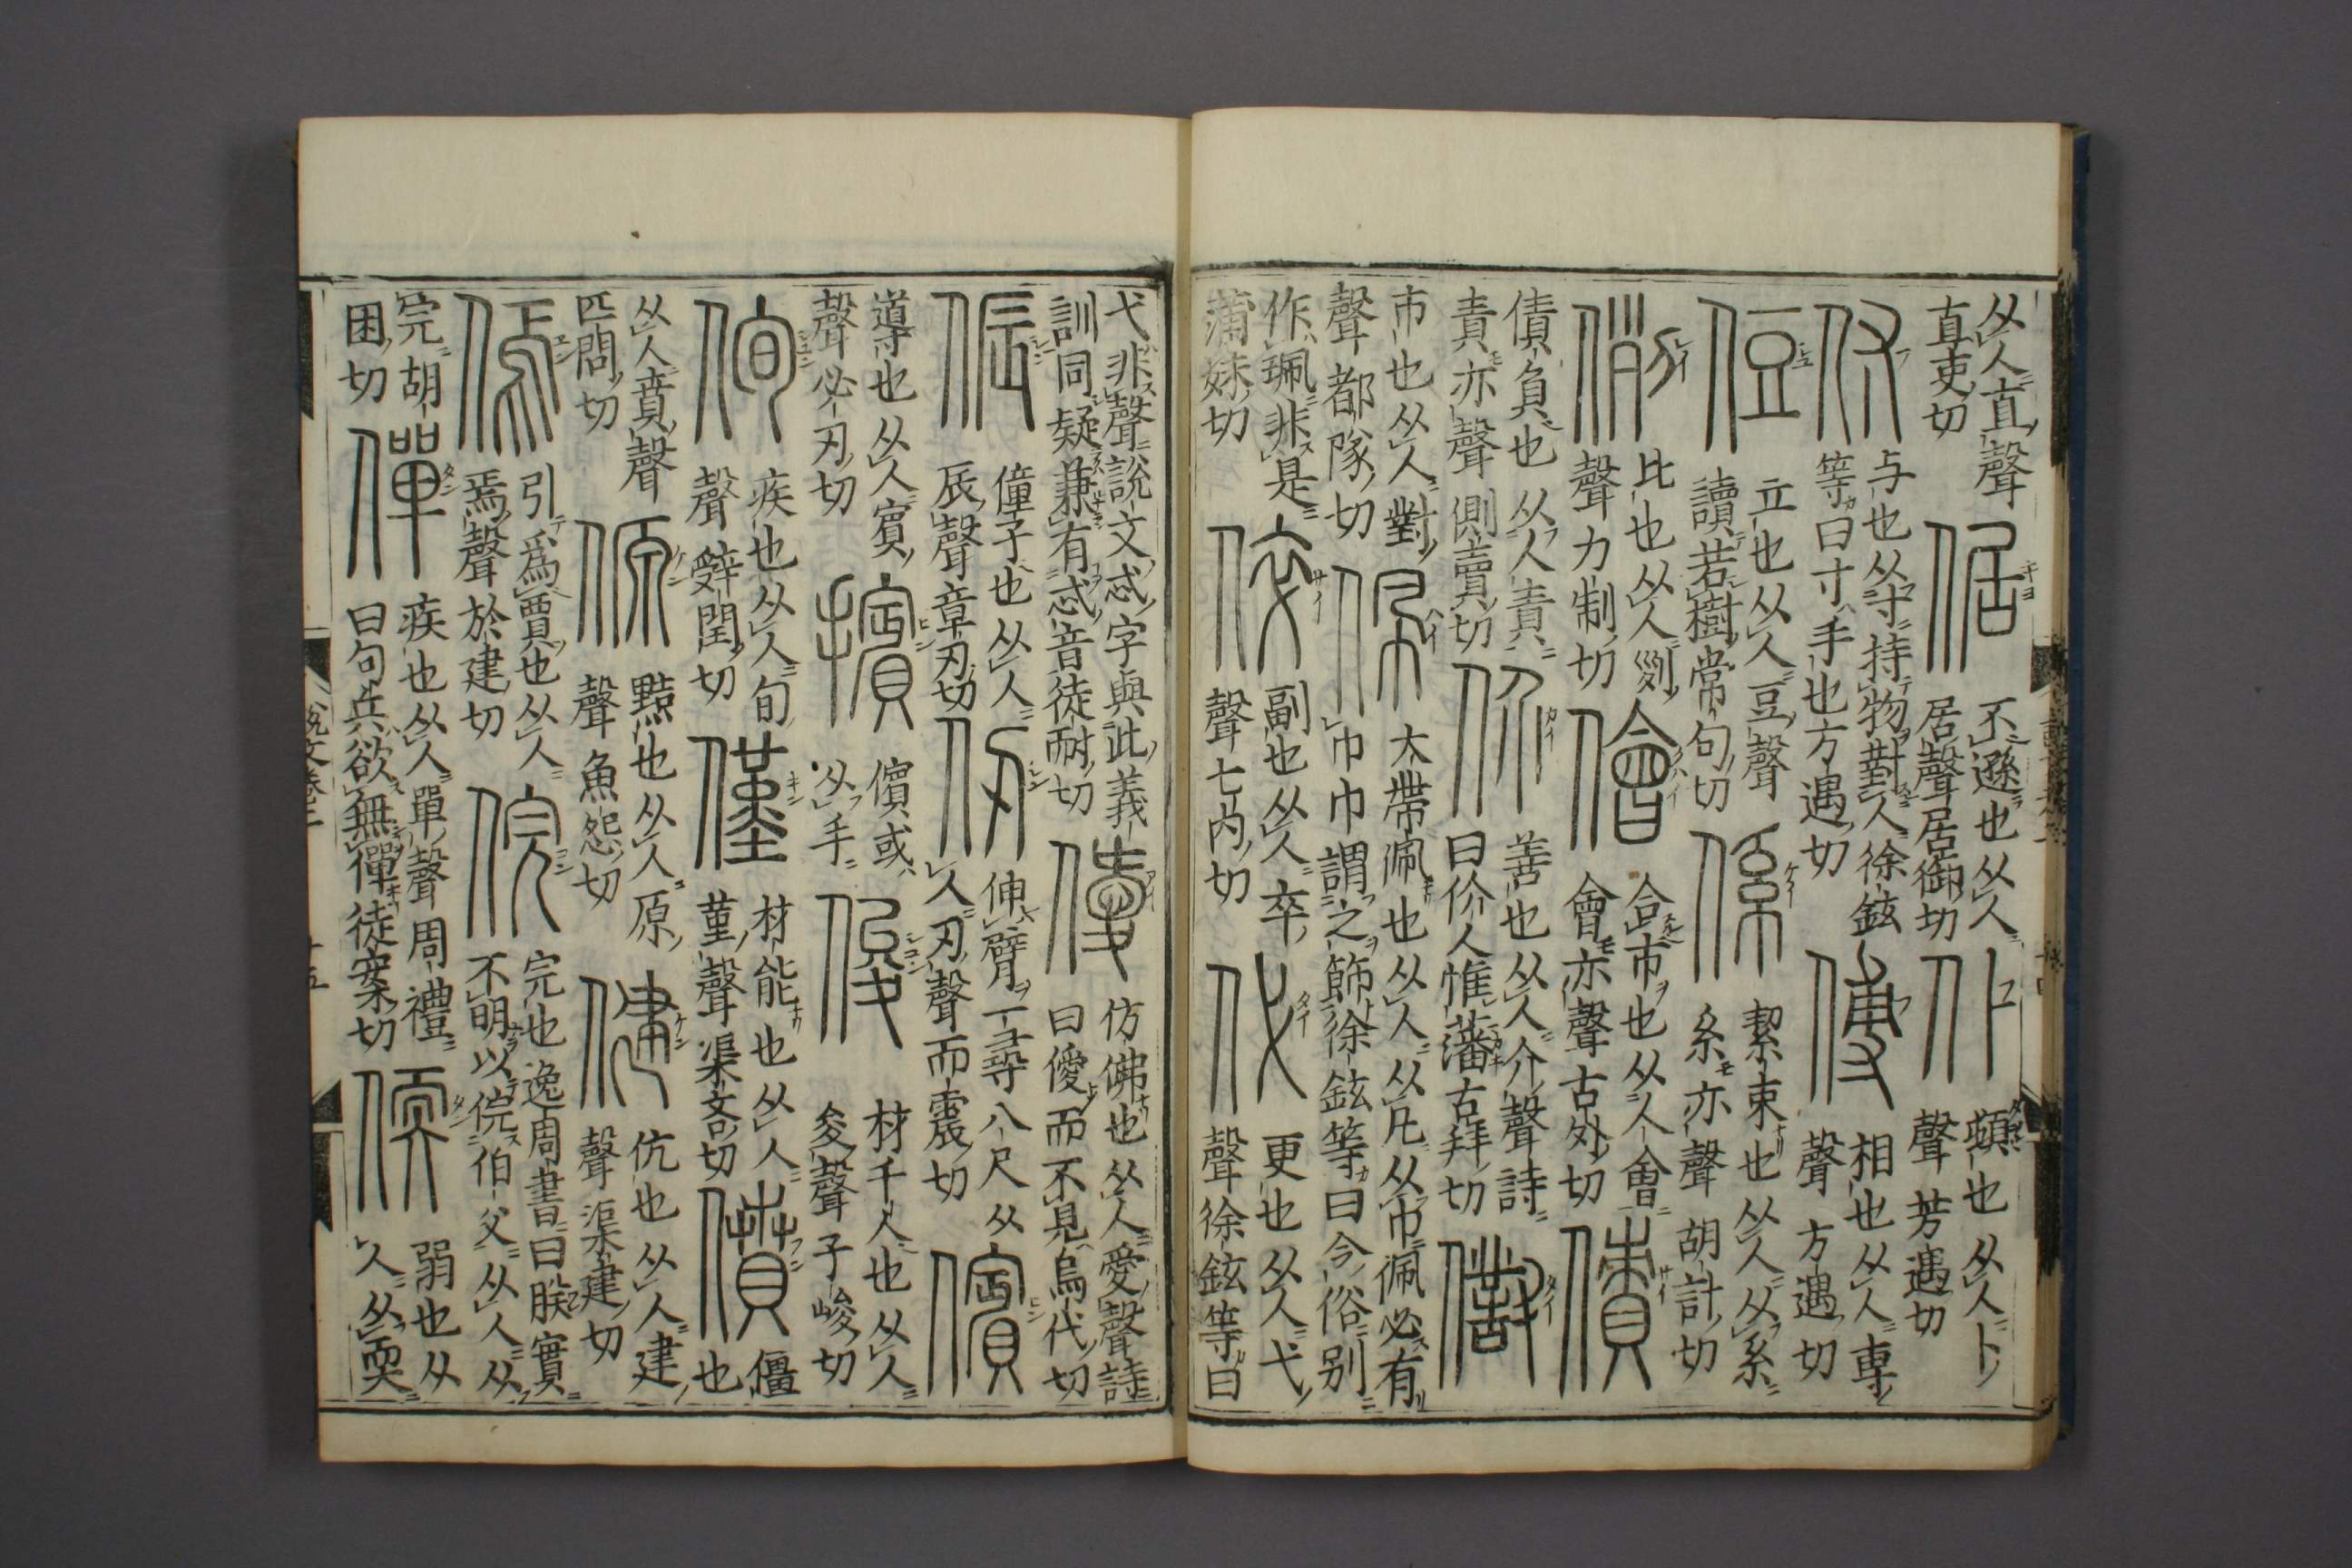 从人直聲
直吏切
倨
不遜也从人
居聲居御切
仆
頓也从人卜
聲芳遇切
付
与也从寸持物對人徐鉉
等曰寸手也方遇切
傅
相也从人専
聲方遇切
侸
立也从人豆聲
讀若樹常句切
係
絜束也从人从系
系亦聲胡計切
例
比也从人列
聲力制切
儈
合市也从人會
會亦聲古外切
債
債負也从人責
責亦聲側賣切
价
善也从人介聲詩
曰价人惟藩古拜切
市也从人對
聲都隊切
佩
大帶佩也从人从凡从巾佩必有
巾巾謂之飾徐鉉等曰今俗別
作珮非是
蒲妹切
倅
副也从人卒
聲七内切
代
更也从人弋
聲徐鉉等曰
弋非聲說文忒字與此義
訓同疑兼有忒音徒耐切
僾
仿佛也从人愛聲詩
曰僾而不見烏代切
侲
僮子也从人
辰聲章刃切
仞
伸臂一尋八尺从
人刃聲而震切
儐
導也从人賓
聲必刃切
擯
儐或
从手
俊
材千人也从人
夋聲子峻切
侚
疾也从人旬
聲辝閏切
僅
材能也从人
堇聲渠吝切
僨
僵
也
从人賁聲
匹問切
傆
黠也从人原
聲魚怨切
健
伉也从人建
聲渠建切
傿
引為賈也从人
焉聲於建切
俒
完也逸周書曰朕實
不明以俒伯父从人从
完胡
困切
僤
疾也从人單聲周禮
曰句兵欲無僤徒案切
偄
弱也从
人从耎